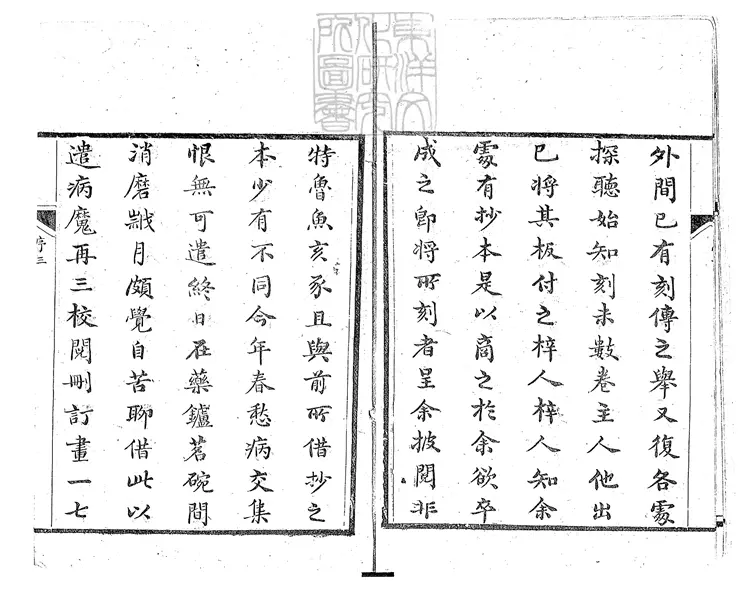 外間已有刻傳之舉又復各處
探聽始知刻未數卷主人他出
已將其板付之梓人梓人知余
處有抄本是以商之於余欲卒
成之即將所刻者呈余披閱非
特魯魚亥豕且與前所借抄之
本少有不同今年春愁病交集
恨無可遣終日在藥鑪茗碗間
消磨歲月頗覺自苦聊借此以
遣病魔再三校閱刪訂畫一七
序三
東洋文
化研究
所圖書